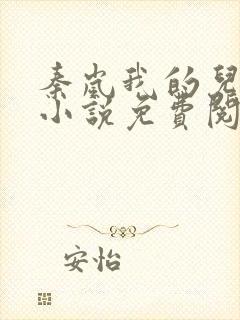 秦岚我的兒
小說免費閱
安怡